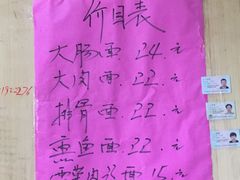 价目表
大肠面.24.元
大肉面.22.元
排骨面.22.元
熏鱼面.22.元
面.15.元